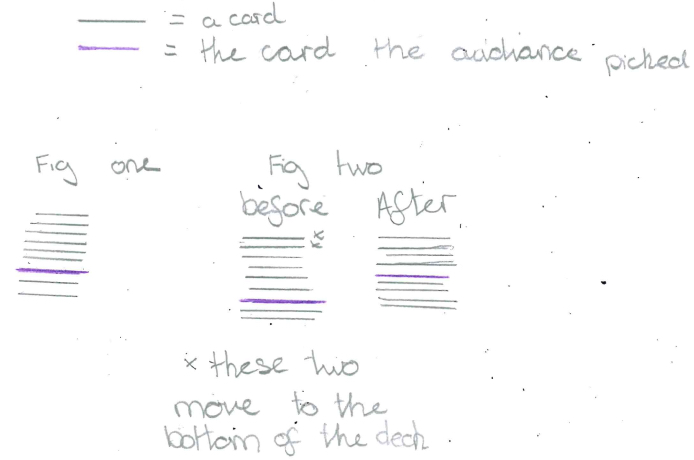 = a card
= the card the audiance picked
Fig one
Fig two
before After
x
x
x these two
move to the
bottom of the deck.